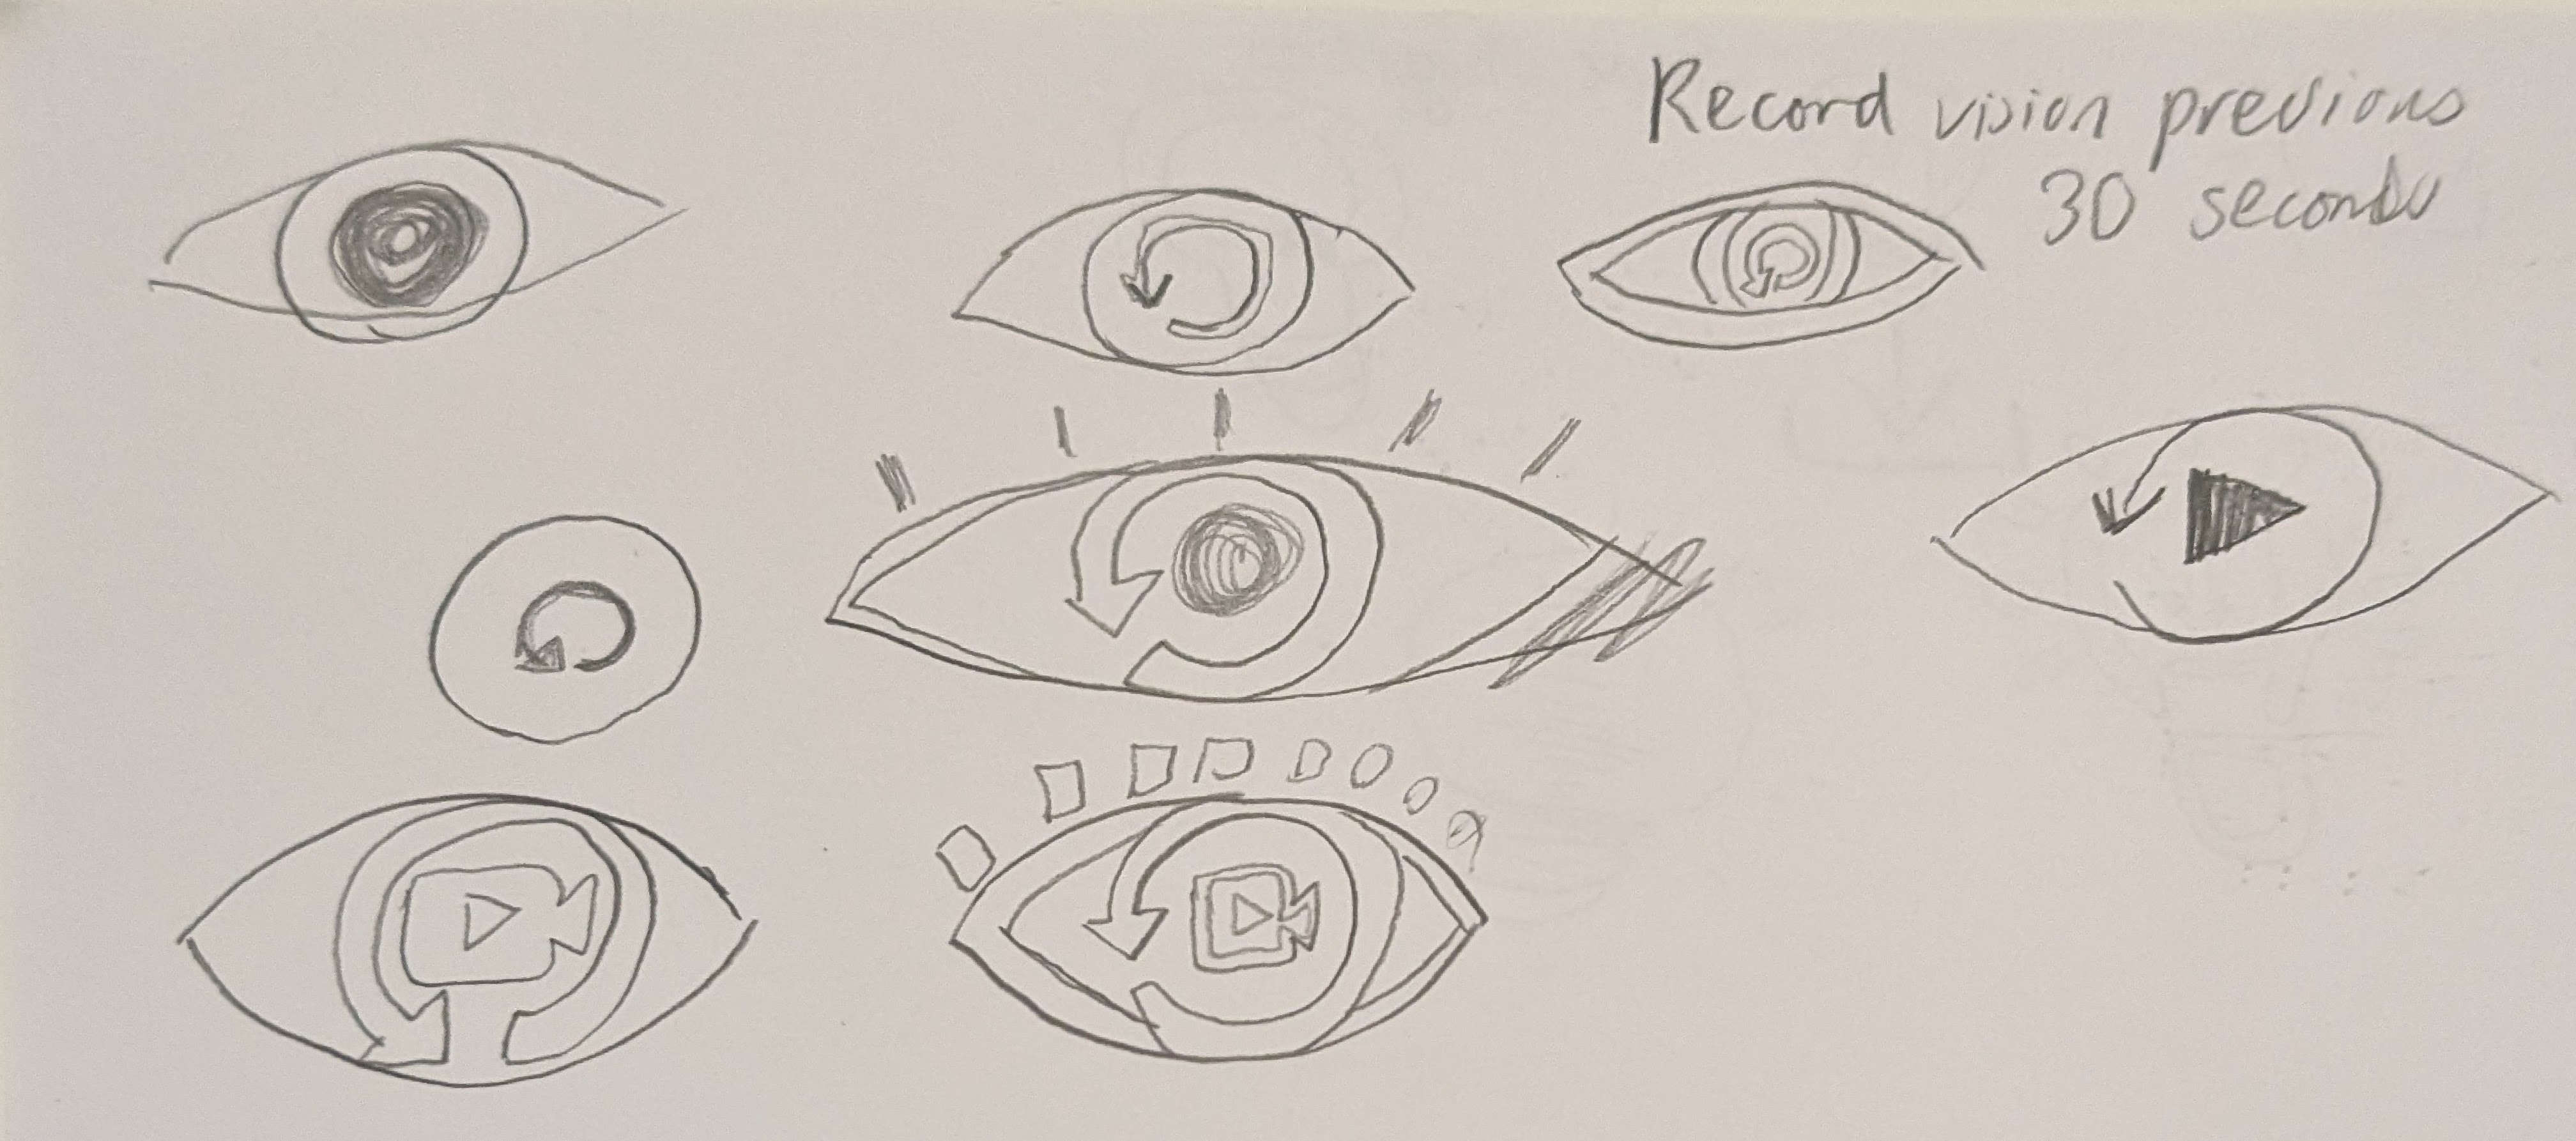 Record vision previous
30 seconds